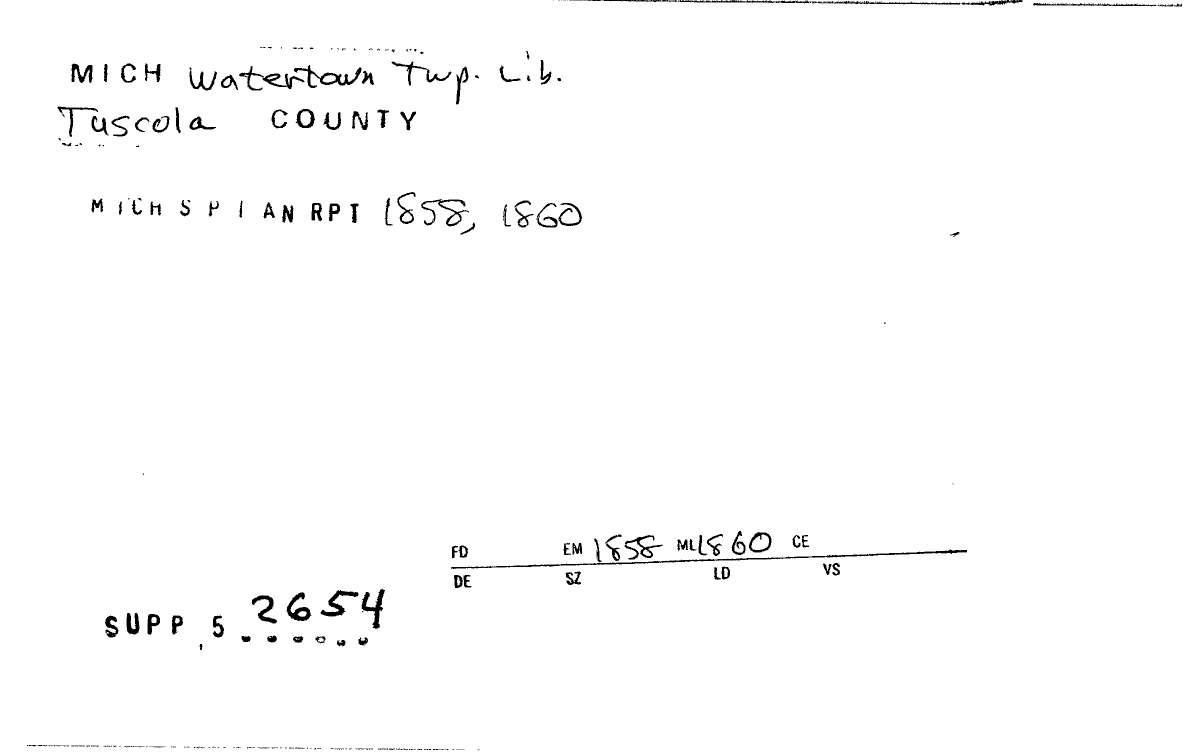 MICH Watertown Twp. Lib.
Tuscola COUNTY
MICH S P I AN RPT 1858, 1860
FD EM 1858 ML 1860 CE
DE SZ LD VS
SUPP 5 2654